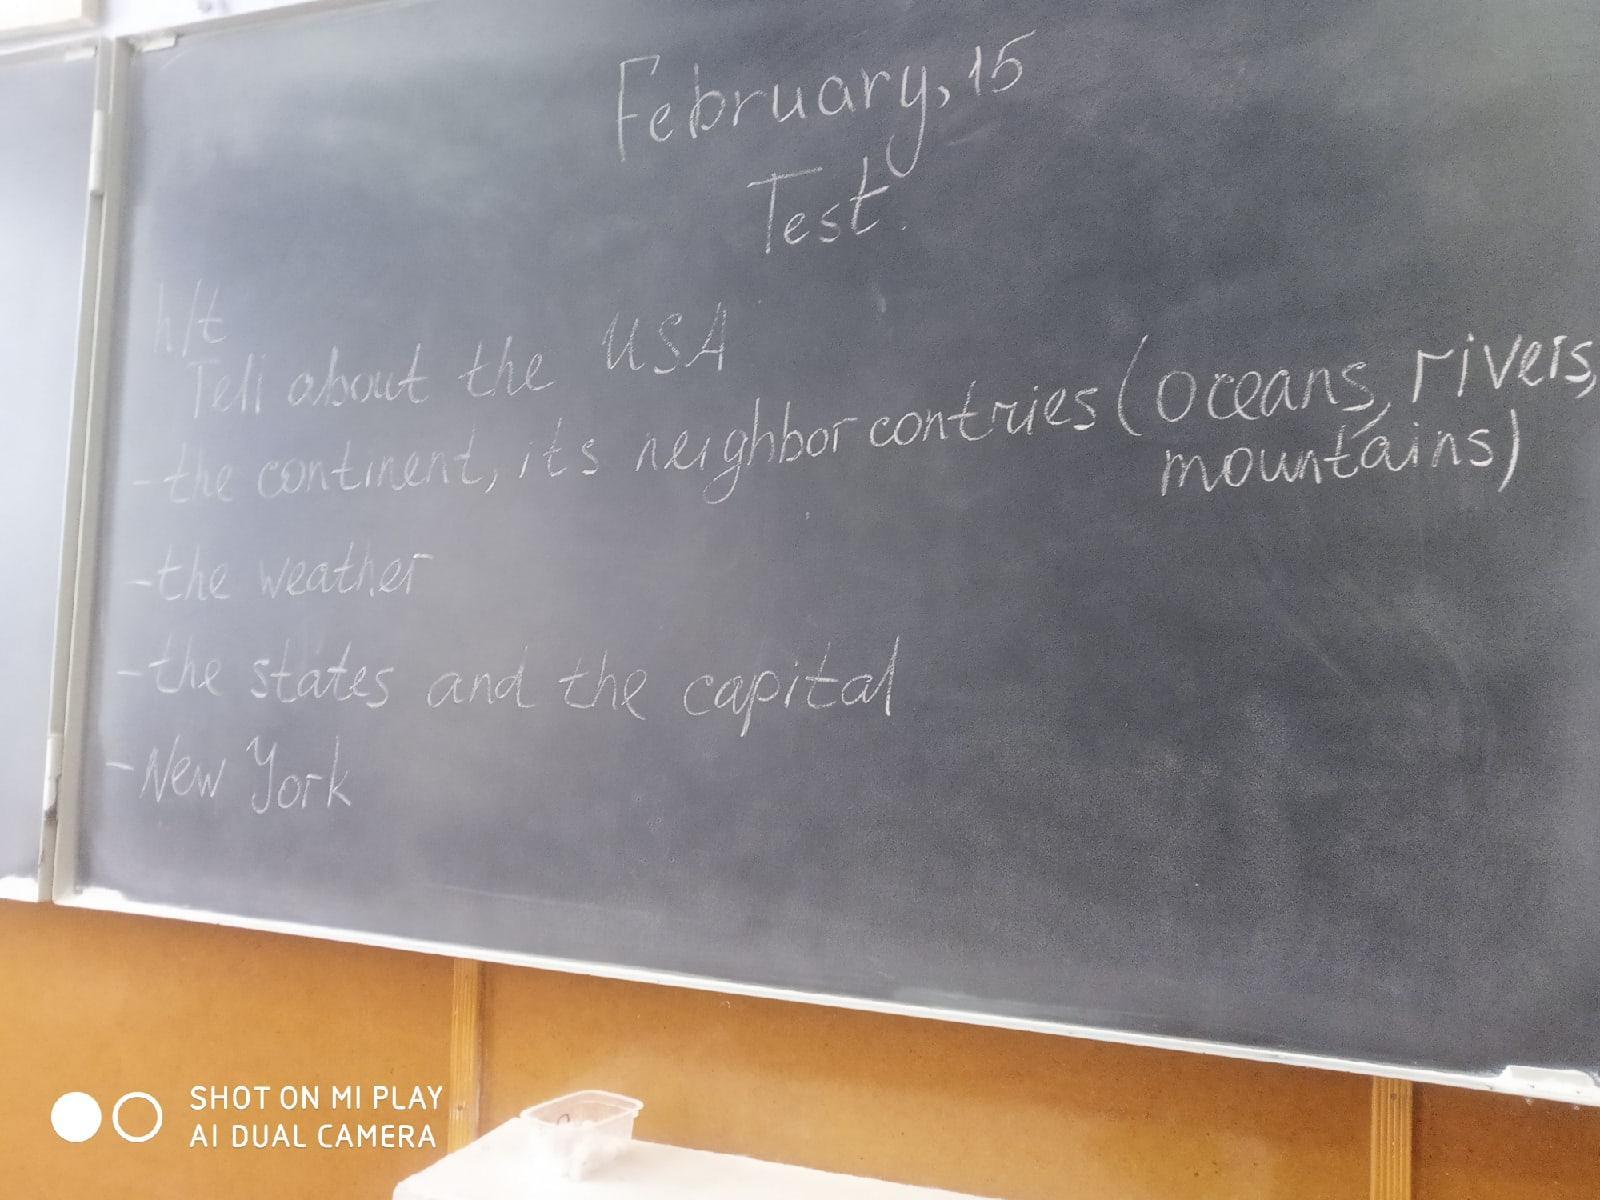 February, 15
Test.
h/t
Tell about the USA
- the continent, its neighbor contries (oceans, rivers,
mountains)
- the weather
- the states and the capital
- New York
SHOT ON MI PLAY
AI DUAL CAMERA